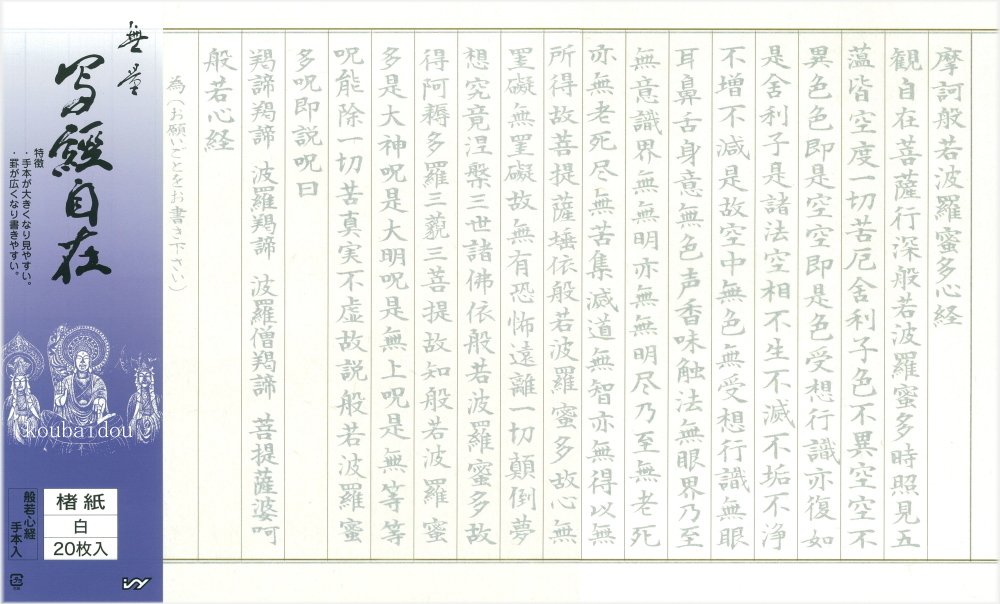 無量
写經自在
特徴
・手本が大きくなり見やすい。
・罫が広くなり書きやすい。
koubaidou
般若心経
手本入
楮紙
白
20枚入
摩訶般若波羅蜜多心経
観自在菩薩行深般若波羅蜜多時照見五
蕰皆空度一切苦厄舎利子色不異空空不
異色色即是空空即是色受想行識亦復如
是舎利子是諸法空相不生不滅不垢不浄
不増不減是故空中無色無受想行識無眼
耳鼻舌身意無色声香味触法無眼界乃至
無意識界無無明亦無無明尽乃至無老死
亦無老死尽無苦集滅道無智亦無得以無
所得故菩提薩埵依般若波羅蜜多故心無
罣礙無罣礙故無有恐怖遠離一切顛倒夢
想究竟涅槃三世諸佛依般若波羅蜜多故
得阿耨多羅三藐三菩提故知般若波羅蜜
多是大神呪是大明呪是無上呪是無等等
呪能除一切苦真実不虚故説般若波羅蜜
多呪即説呪曰
羯諦羯諦 波羅羯諦 波羅僧羯諦 菩提薩婆呵
般若心経
為(お願いごとをお書き下さい)